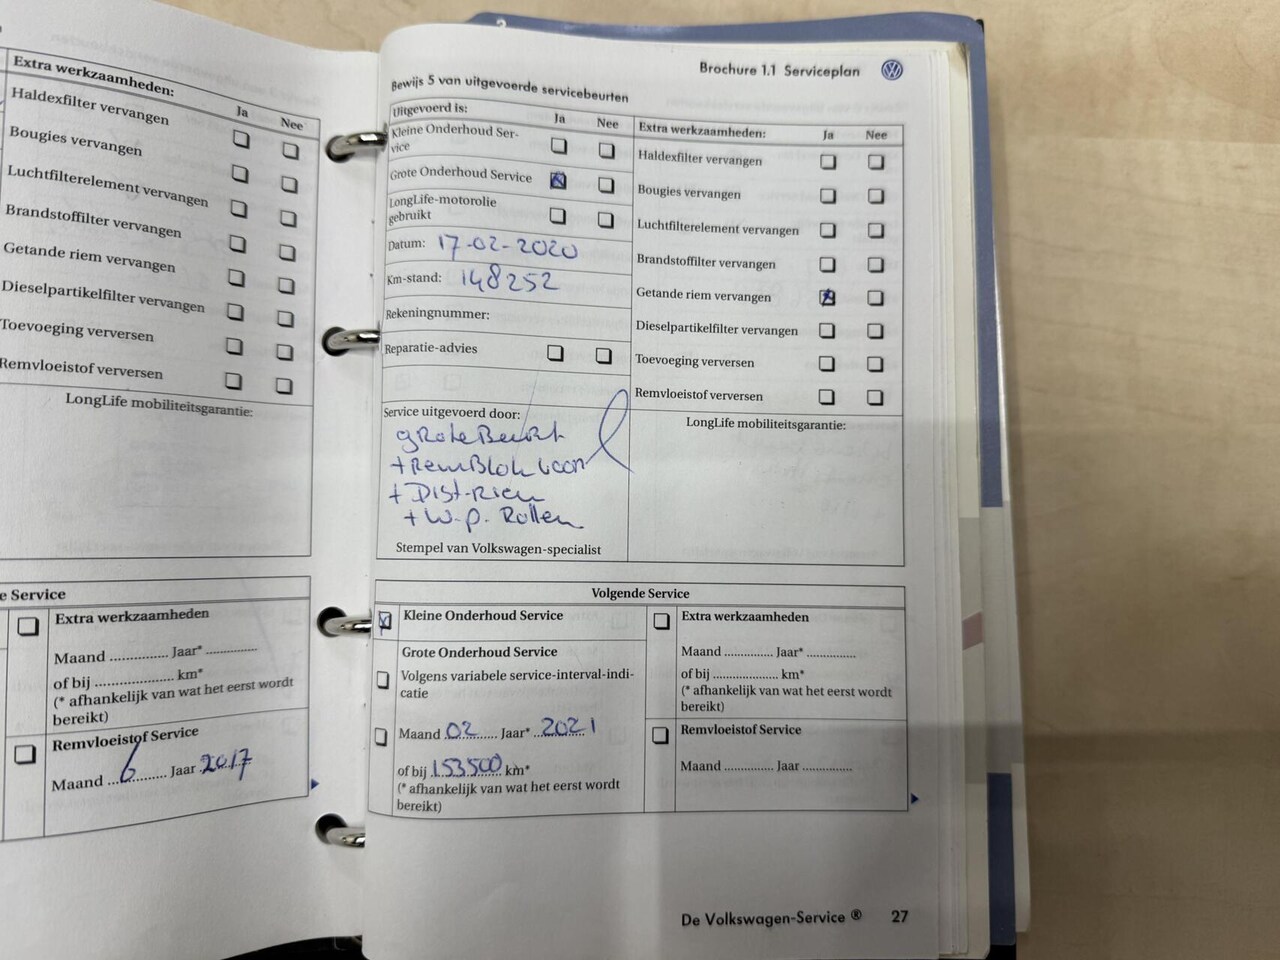 Extra werkzaamheden:
Ja Nee
Haldexfilter vervangen
Bougies vervangen
Luchtfilterelement vervangen
Brandstoffilter vervangen
Getande riem vervangen
Dieselpartikelfilter vervangen
Toevoeging verversen
Remvloeistof verversen
LongLife mobiliteitsgarantie:
e Service
Extra werkzaamheden
Maand .............. Jaar* ..............
of bij .................... km*
(* afhankelijk van wat het eerst wordt
bereikt)
Remvloeistof Service
Maand ...6... Jaar 2017
Brochure 1.1 Serviceplan
Bewijs 5 van uitgevoerde servicebeurten
Uitgevoerd is:
Ja Nee
Kleine Onderhoud Ser-
vice
Grote Onderhoud Service
LongLife-motorolie
gebruikt
Datum: 17-02-2020
Km-stand: 148252
Rekeningnummer:
Reparatie-advies
Service uitgevoerd door:
grote Beurt
+ RemBlok voor
+ Dist-Riem
+ W.p. Rollen
Stempel van Volkswagen-specialist
Extra werkzaamheden:
Ja Nee
Haldexfilter vervangen
Bougies vervangen
Luchtfilterelement vervangen
Brandstoffilter vervangen
Getande riem vervangen
Dieselpartikelfilter vervangen
Toevoeging verversen
Remvloeistof verversen
LongLife mobiliteitsgarantie:
Volgende Service
Kleine Onderhoud Service
Grote Onderhoud Service
Volgens variabele service-interval-indi-
catie
Maand 02 Jaar* 2021
of bij 153500 km*
(* afhankelijk van wat het eerst wordt
bereikt)
Extra werkzaamheden
Maand .............. Jaar* ..............
of bij .................... km*
(* afhankelijk van wat het eerst wordt
bereikt)
Remvloeistof Service
Maand .............. Jaar ..............
De Volkswagen-Service ® 27